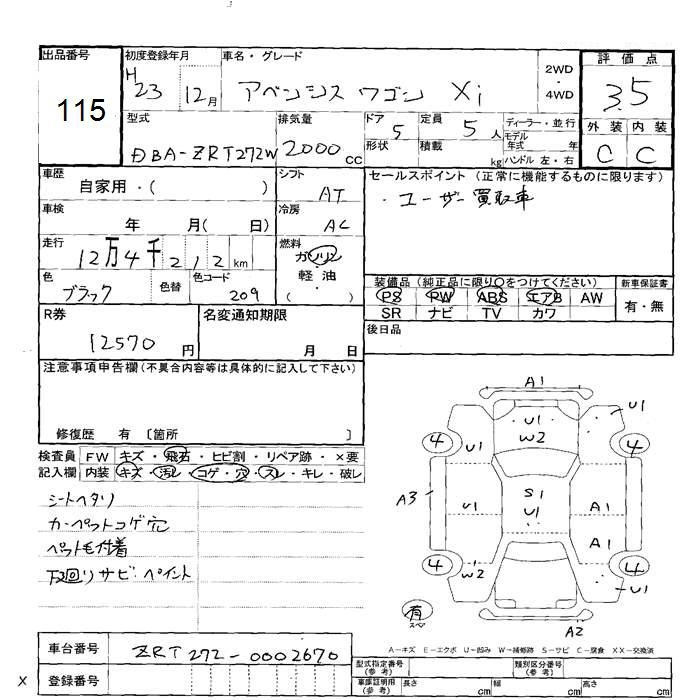 出品番号
115
初度登録年月
H23 12月
車名・グレード
アベンシス ワゴン Xi
2WD
・
4WD
評価点
3.5
外装 内装
C C
型式
DBA-ZRT272W
排気量
2000 cc
ドア
5
形状
定員
5人
積載
kg
ディーラー・並行
モデル年式 年
ハンドル 左・右
車歴
自家用・( )
シフト
AT
セールスポイント(正常に機能するものに限ります)
・ユーザー買取車
車検
年 月( 日)
冷房
AC
走行
12万4千212km
燃料
ガソリン
・
軽油
( )
色
ブラック
色替
色コード
209
装備品(純正品に限り○をつけてください)
PS PW ABS エアB AW
SR ナビ TV カワ
新車保証書
有・無
R券
12570円
名変通知期限
月 日
後日品
注意事項申告欄(不具合内容等は具体的に記入して下さい)
修復歴 有 〔箇所 〕
検査員記入欄
FW キズ・飛石・ヒビ割・リペア跡・×要
内装 キズ・汚レ・コゲ・穴・スレ・キレ・破レ
シートヘタリ
カーペットコゲ穴
ペット毛付着
下回りサビ・ペイント
A1
U1
U1
W2
4
U1
4
A3
U1
S1
U1
A1
A1
4
W2
4
U1
有
スペ
A2
A−キズ E−エクボ U−凹み W−補修跡 S−サビ C−腐食 XX−交換済
車台番号
ZRT272-0002670
登録番号
型式指定番号(参考)
類別区分番号(参考)
車庫証明用(参考)
長さ cm
幅 cm
高さ cm
X